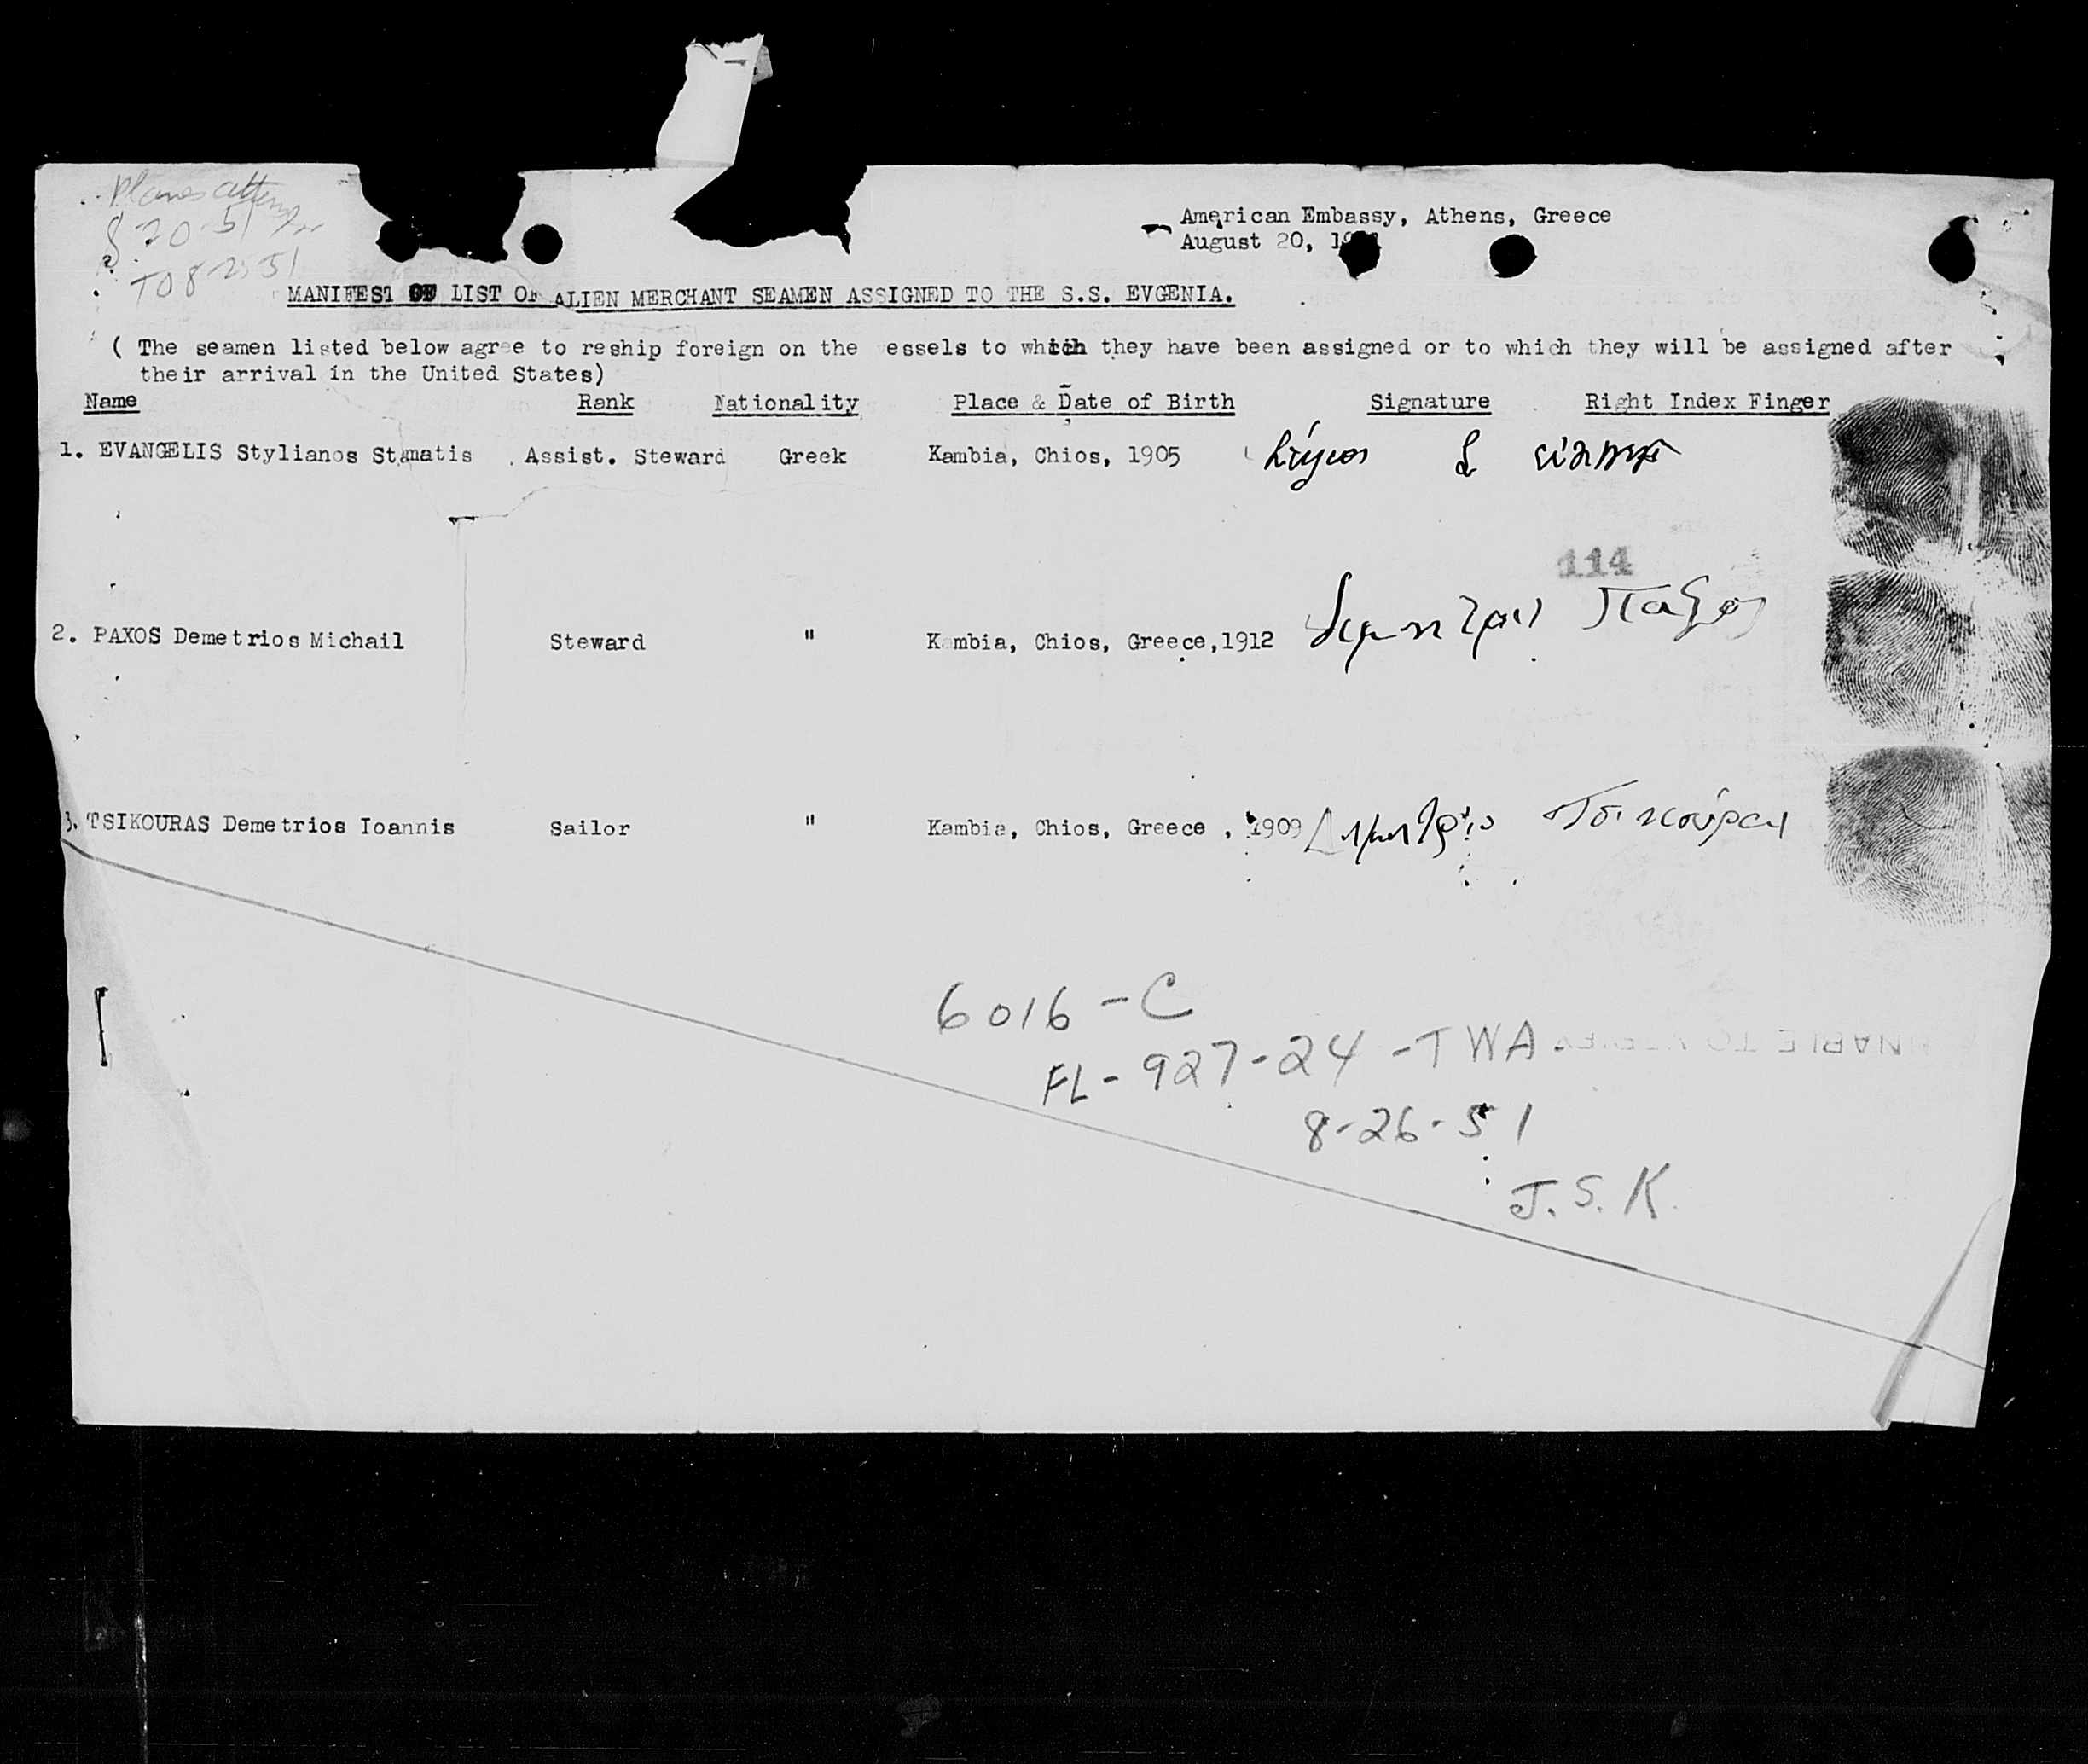 8-20-51
TO 8-25-51
American Embassy, Athens, Greece
August 20, 19
MANIFEST OF LIST OF ALIEN MERCHANT SEAMEN ASSIGNED TO THE S.S. EVGENIA.
( The seamen listed below agree to reship foreign on the essels to which they have been assigned or to which they will be assigned after
their arrival in the United States)
Name Rank Nationality Place & Date of Birth Signature Right Index Finger
1. EVANGELIS Stylianos Stamatis Assist. Steward Greek Kambia, Chios, 1905
114
2. PAXOS Demetrios Michail Steward " Kambia, Chios, Greece,1912 Δημητριος Παξος
3. TSIKOURAS Demetrios Ioannis Sailor " Kambia, Chios, Greece , 1909 Δημητριος Τσικούρας
6016-C
FL-927-24-TWA
8-26-51
J.S.K.